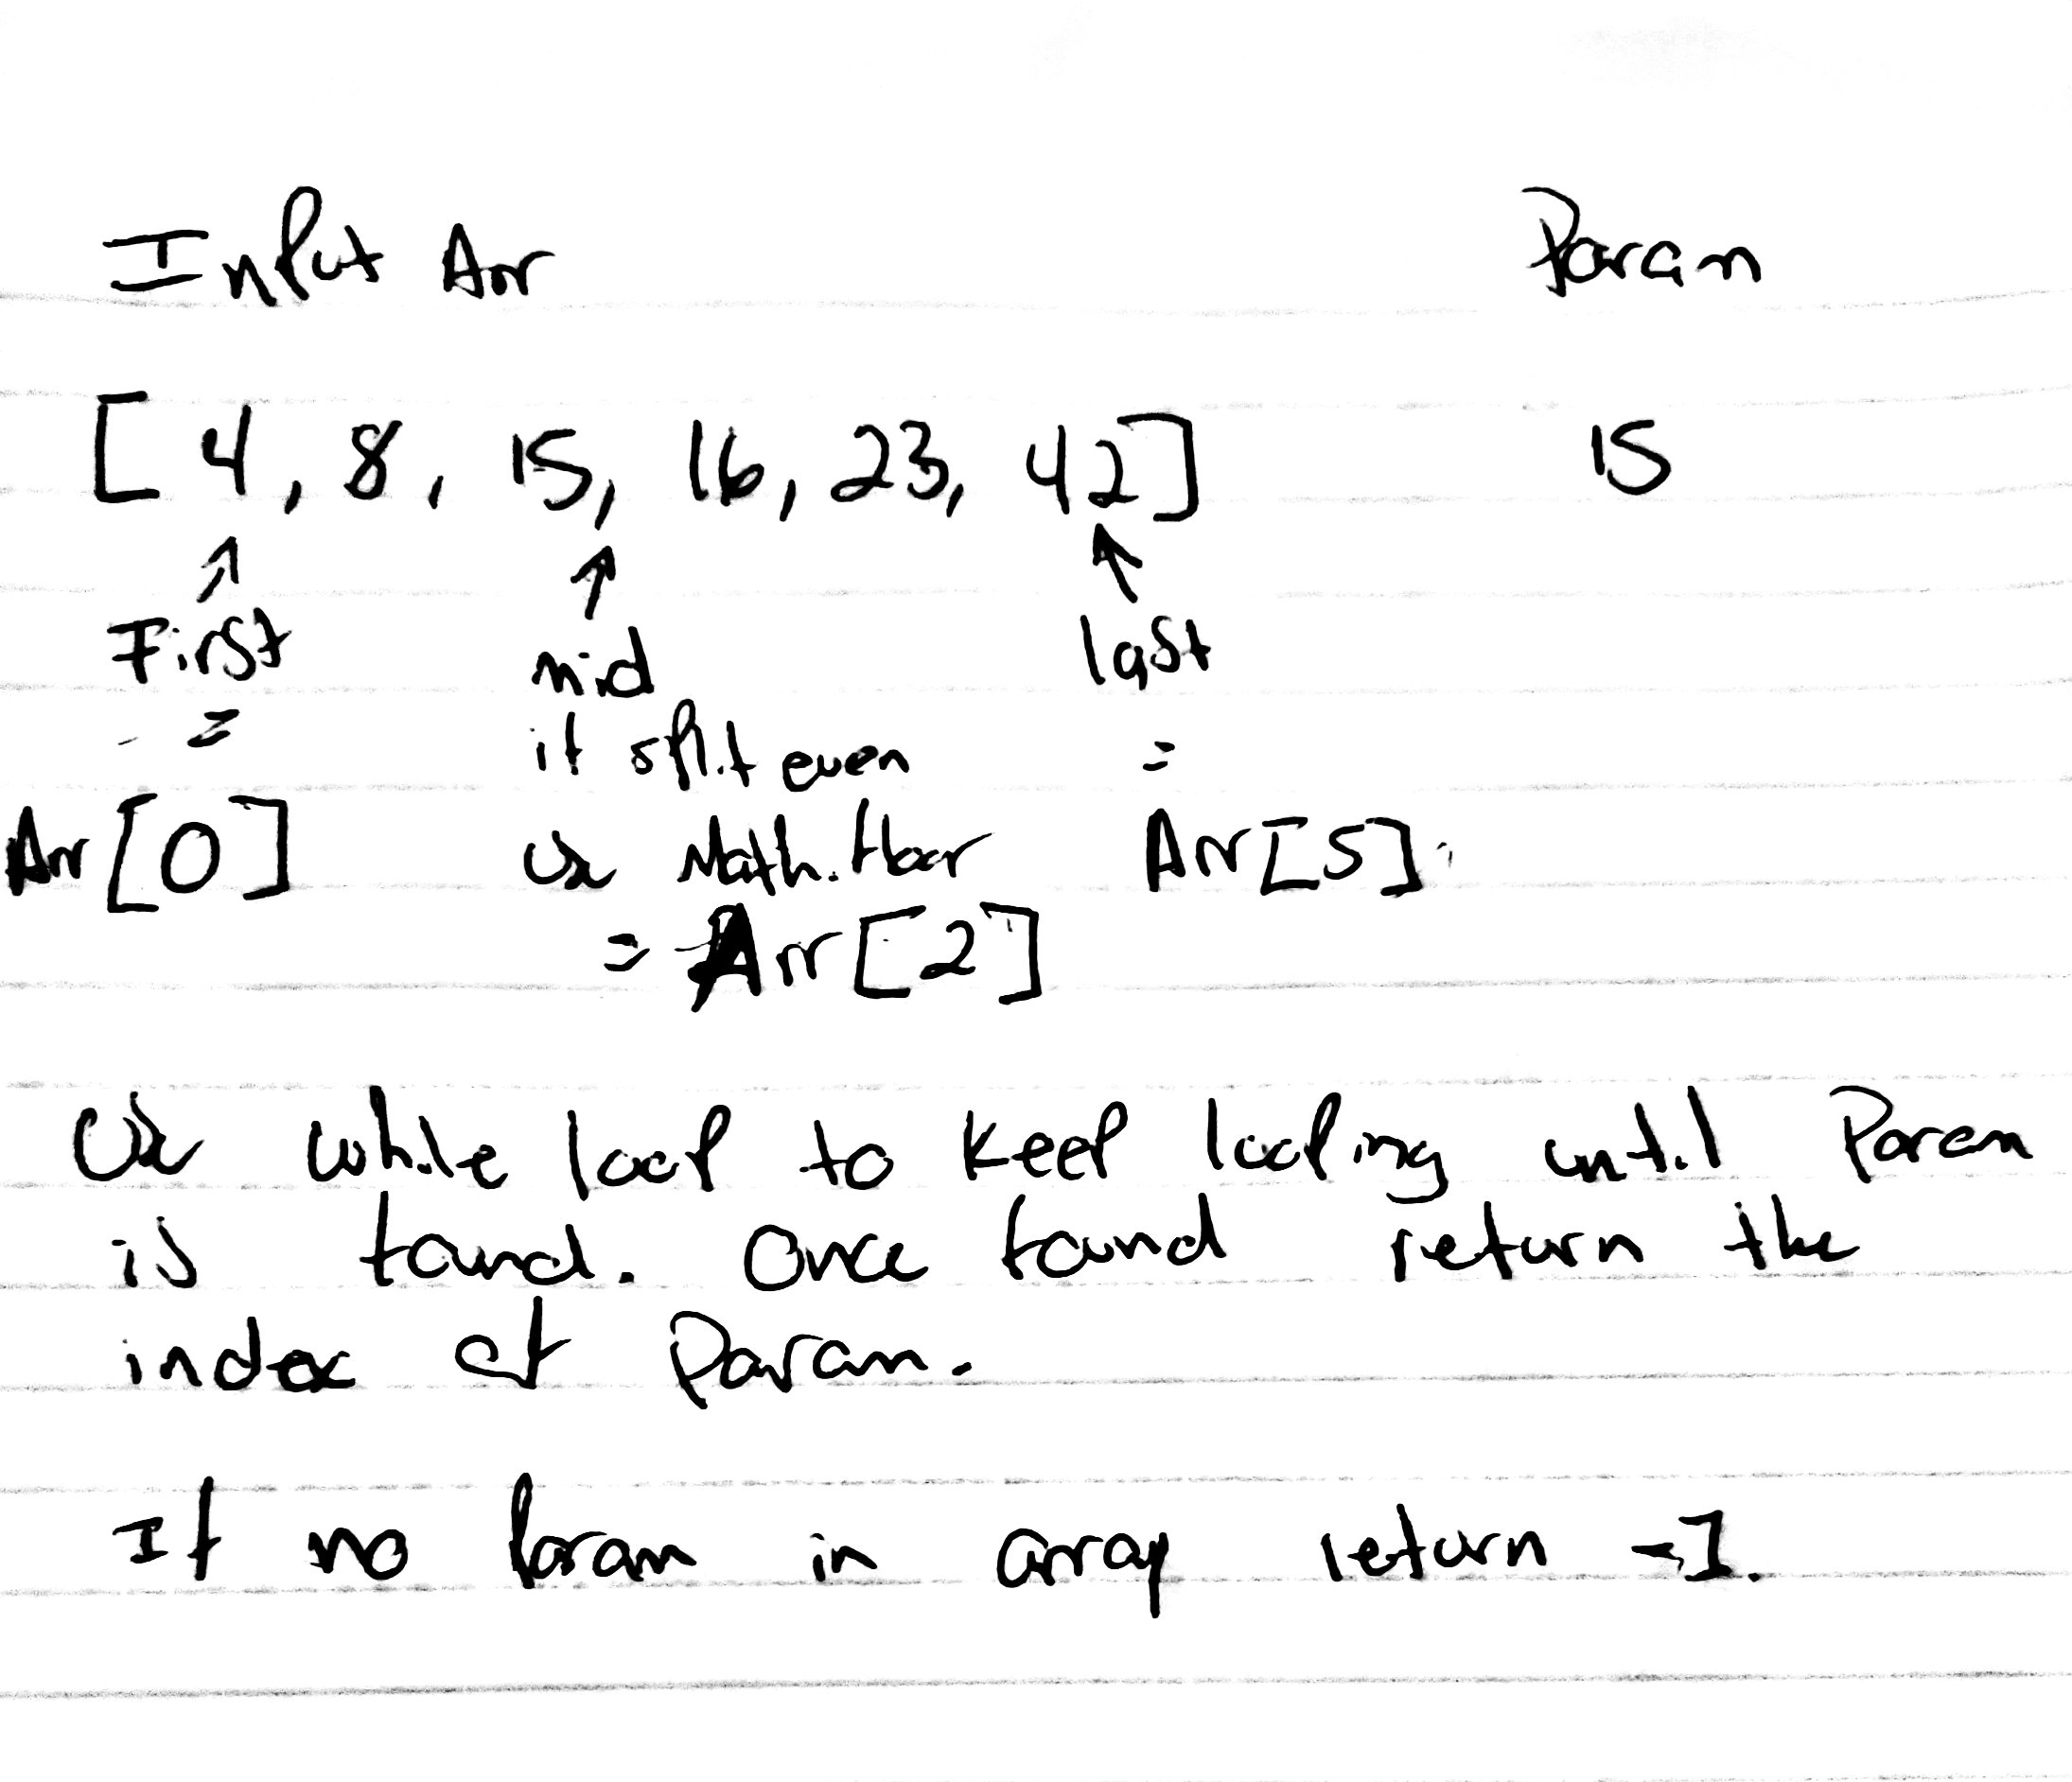 Input Arr Param
[ 4, 8, 15, 16, 23, 42] 15
First mid last
= if split even =
Arr[0] use Math.floor Arr[5]
= Arr[2]
Use while loop to keep looping until Param
is found. Once found return the
index of Param.
If no param in array return -1.